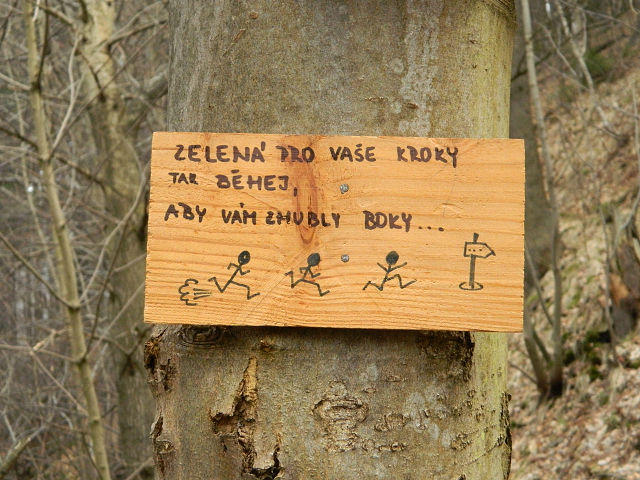 ZELENÁ PRO VAŠE KROKY
TAK BĚHEJ,
ABY VÁM ZHUBLY BOKY...